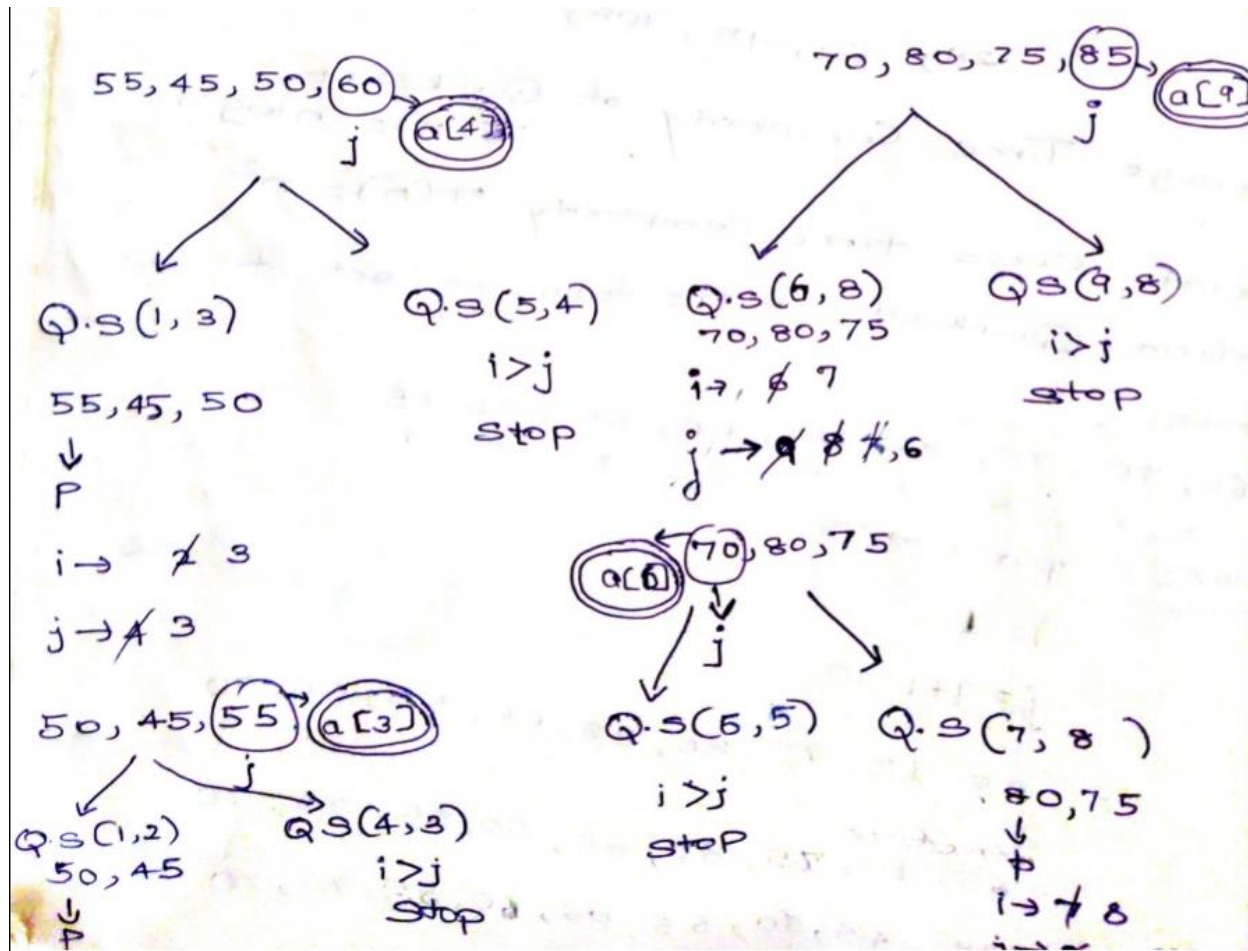 55, 45, 50, 60 → a[4]
j
Q.S(1, 3)
55, 45, 50
↓
P
i → 2 3
j → 4 3
50, 45, 55 → a[3]
j
Q.S(1,2)
50, 45
↓
P
Q S(4,3)
i>j
stop
Q.S(5,4)
i>j
stop
70, 80, 75, 85 → a[9]
j
Q.S(6, 8)
70, 80, 75
i → 6 7
j → 9 8 7, 6
a[6] ← 70, 80, 75
j
i >j
stop
Q.S(7, 8 )
80, 75
↓
P
i → 7 8
Q S(9,8)
i>j
stop